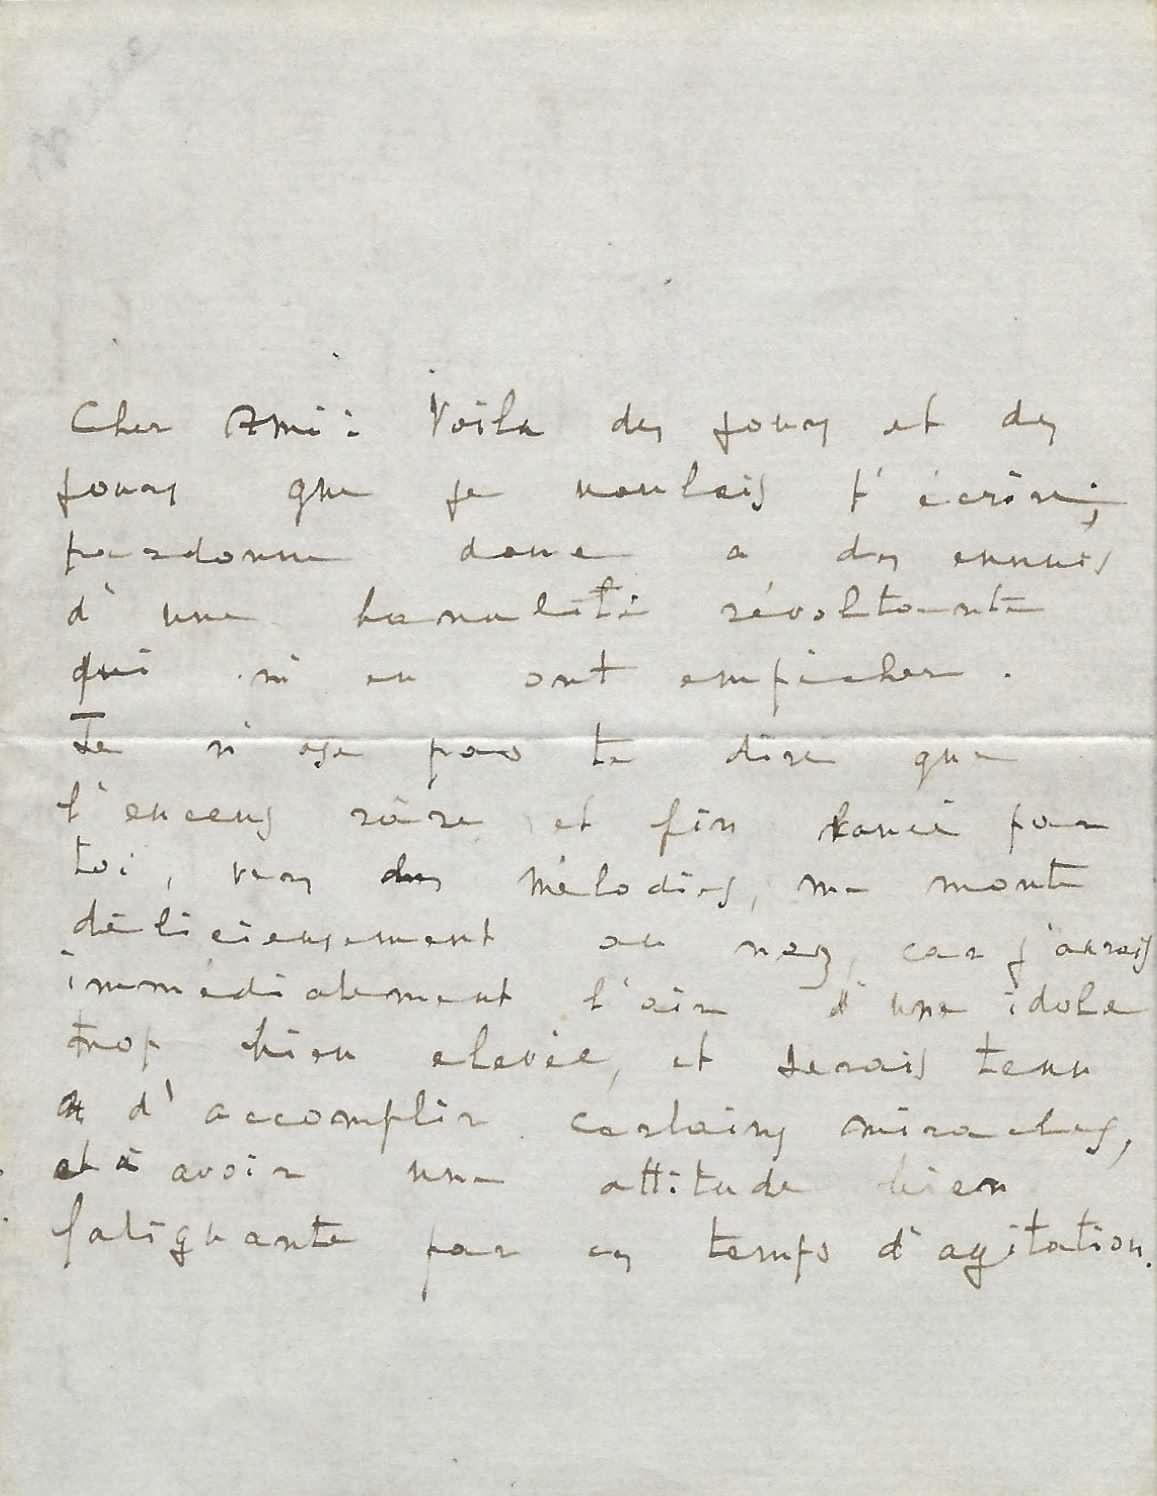 Cher Ami : Voila des jours et des
jours que je voulais t'écrire ;
pardonne donc a des ennuis
d'une banalité révoltante
qui m'en ont empécher.
Je n'ose pas te dire que
l'encens rare et fin lancé par
toi, vers des mélodies, me monte
délicieusement au nez, car j'aurais
immédiatement l'air d'une idole
trop bien elevée, et serais tenu
a d'accomplir certains miracles,
et à avoir une attitude bien
fatiguante par ces temps d'agitation.